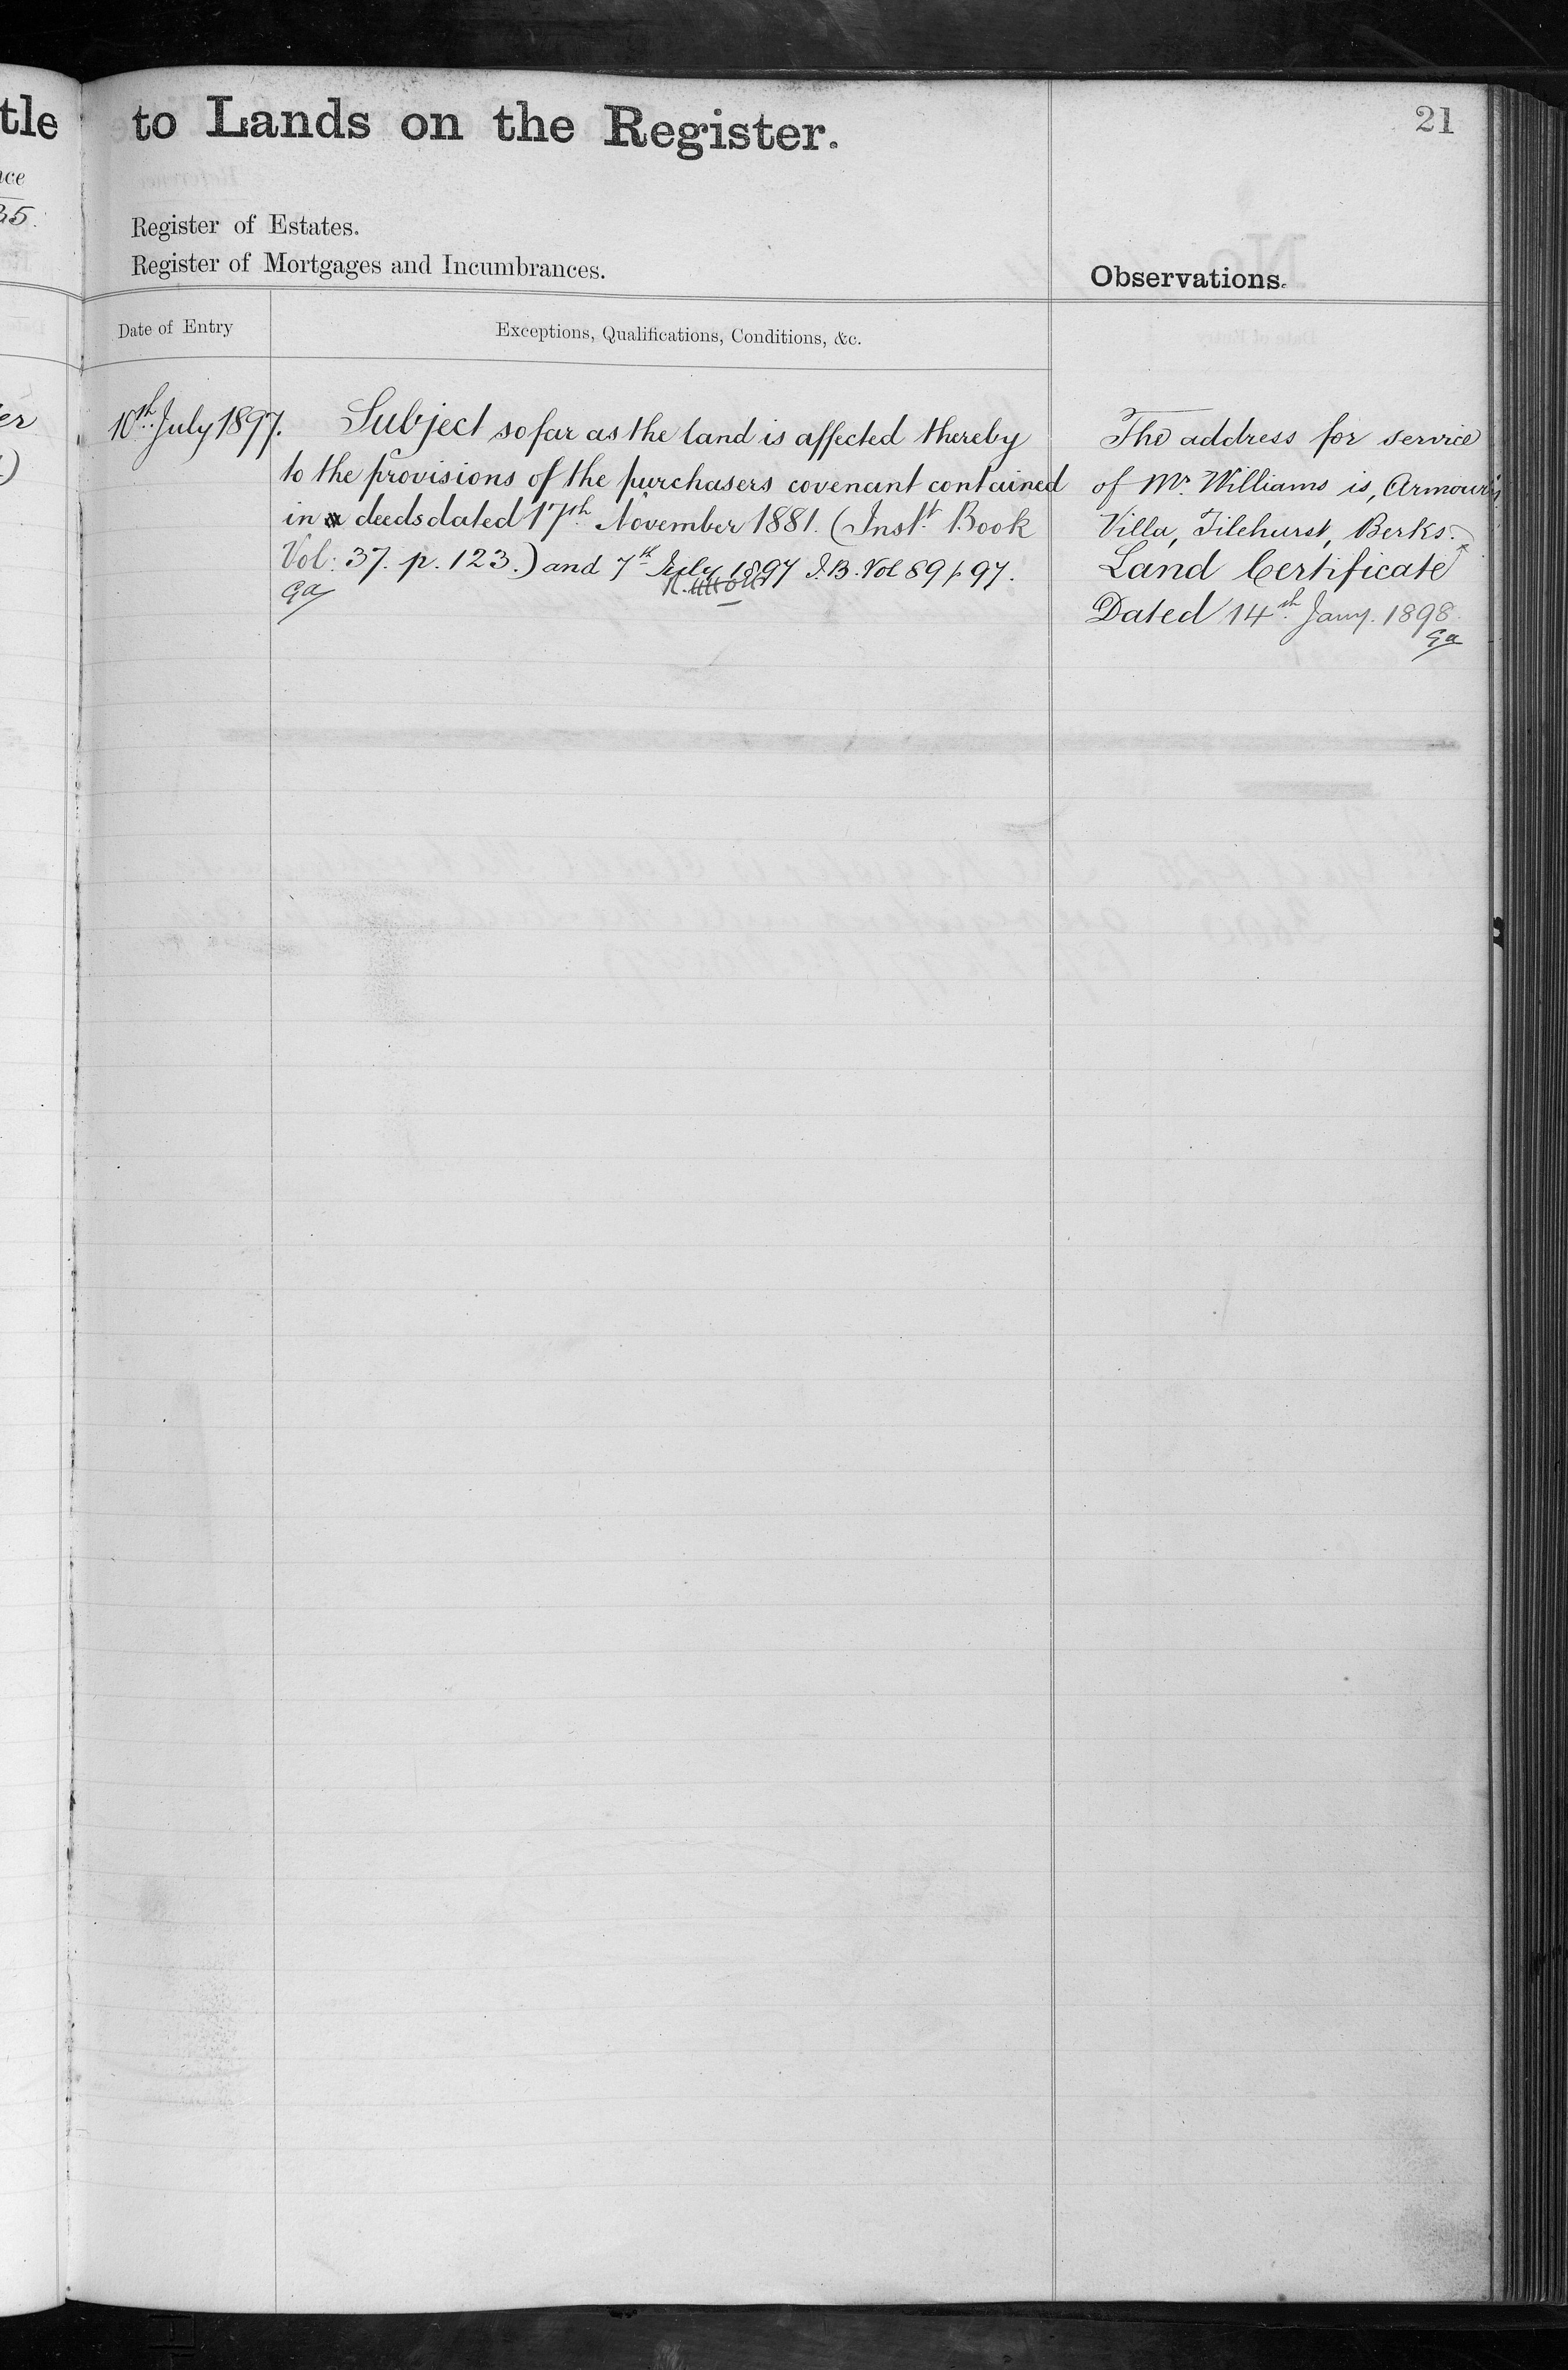 tle
nce
35.
er
to Lands on the Register.
21
Register of Estates.
Register of Mortgages and Incumbrances.
Observations.
Date of Entry
Exceptions, Qualifications, Conditions, &c.
10th July 1897.
Subject so far as the land is affected thereby
to the provisions of the purchasers covenant contained
in deeds dated 17th November 1881. (Inst. Book
Vol: 37. p. 123.) and 7th July 1897 I.B. Vol 89 p 97.
Ga
The address for service
of Mr. Williams is, Armour
Villa, Tilehurst, Berks.
Land Certificate
Dated 14th Jany. 1898.
Ga